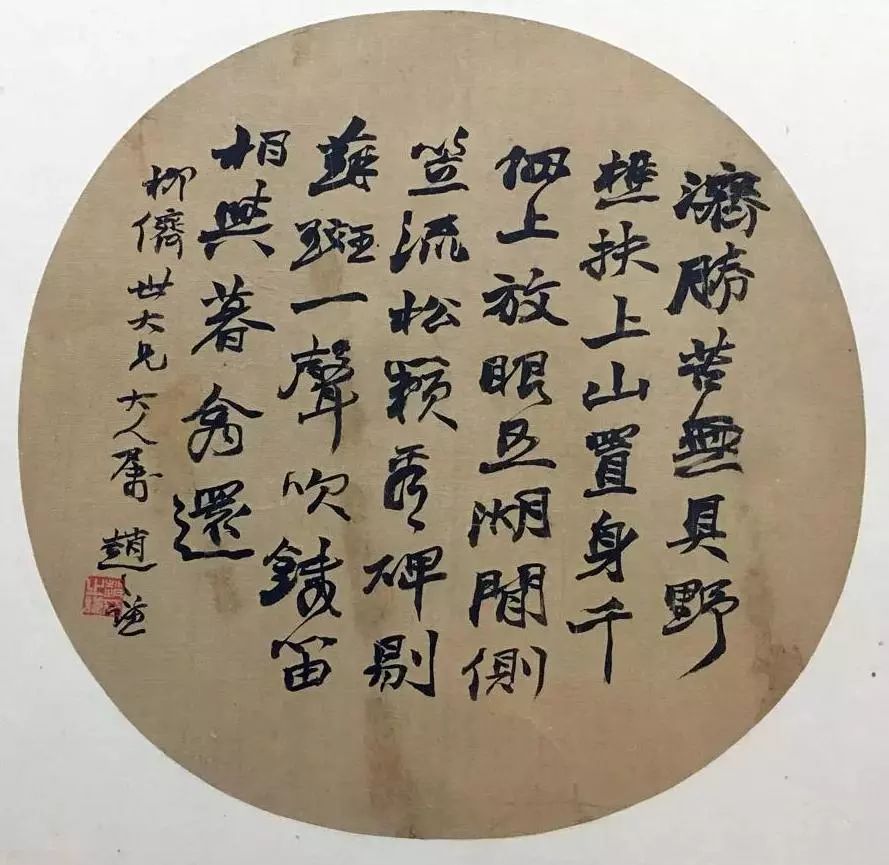 濟勝苦無具野
樵扶上山置身千
仞上放眼五湖閒側
笠流松籟看碑剔
蘚斑一聲吹鐵笛
相與暮禽還
柳儕世大兄大人屬 趙之謙